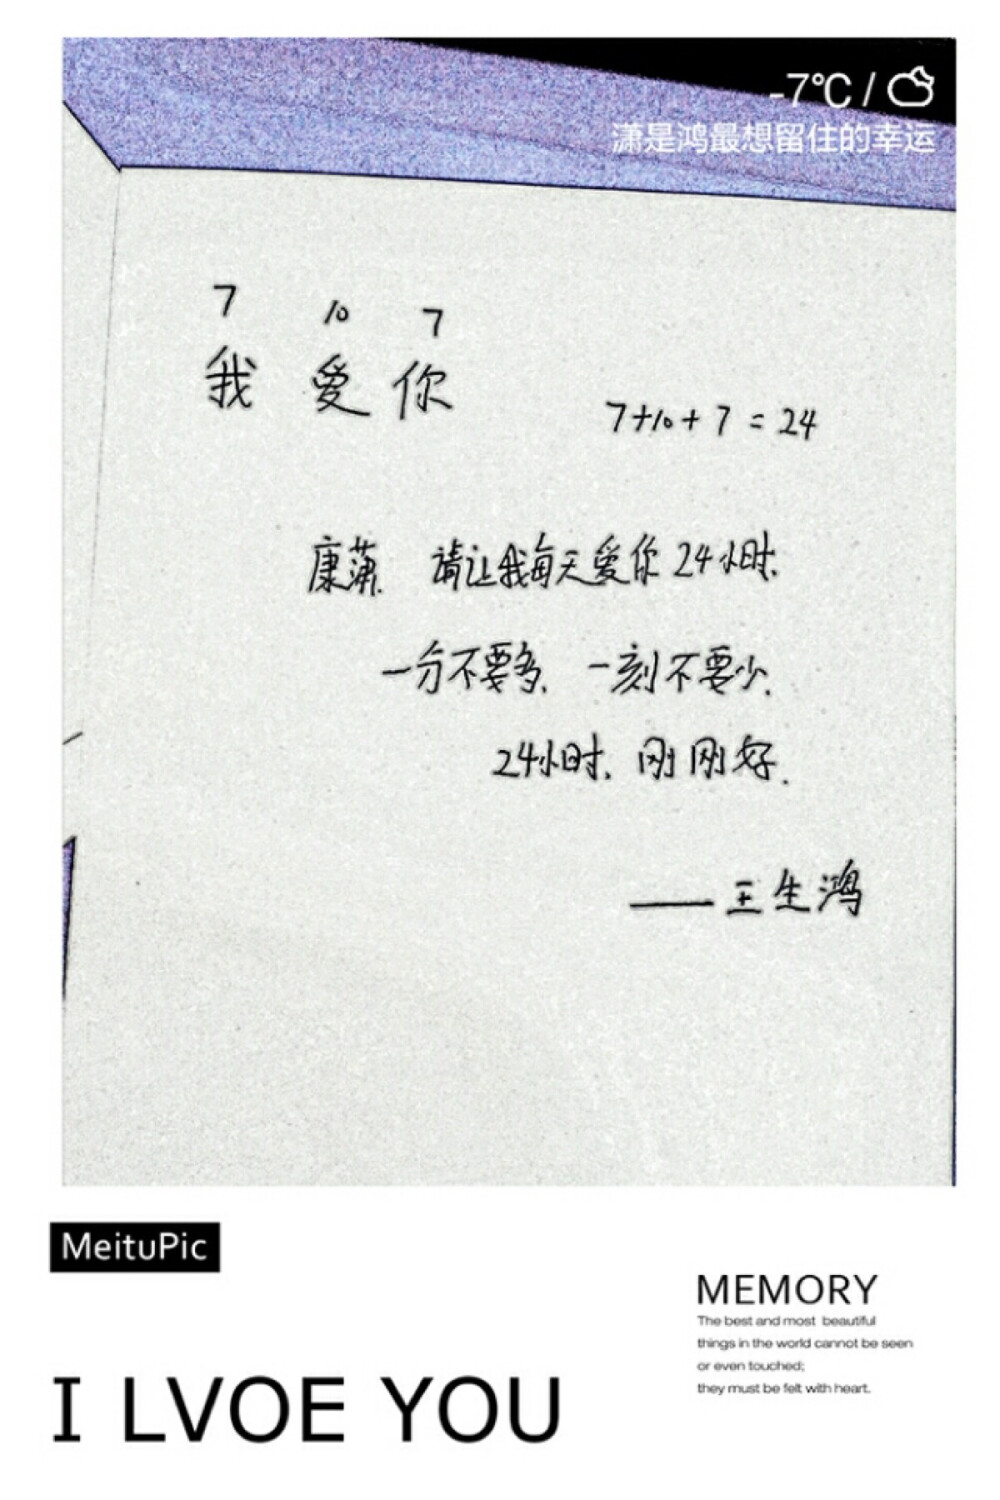 -7℃ /
潇是鸿最想留住的幸运
7 10 7
我 爱 你
7+10+7=24
康潇. 请让我每天爱你24小时.
一分不要多, 一刻不要少.
24小时, 刚刚好.
——王生鸿
MeituPic
MEMORY
The best and most beautiful
things in the world cannot be seen
or even touched;
they must be felt with heart.
I LVOE YOU